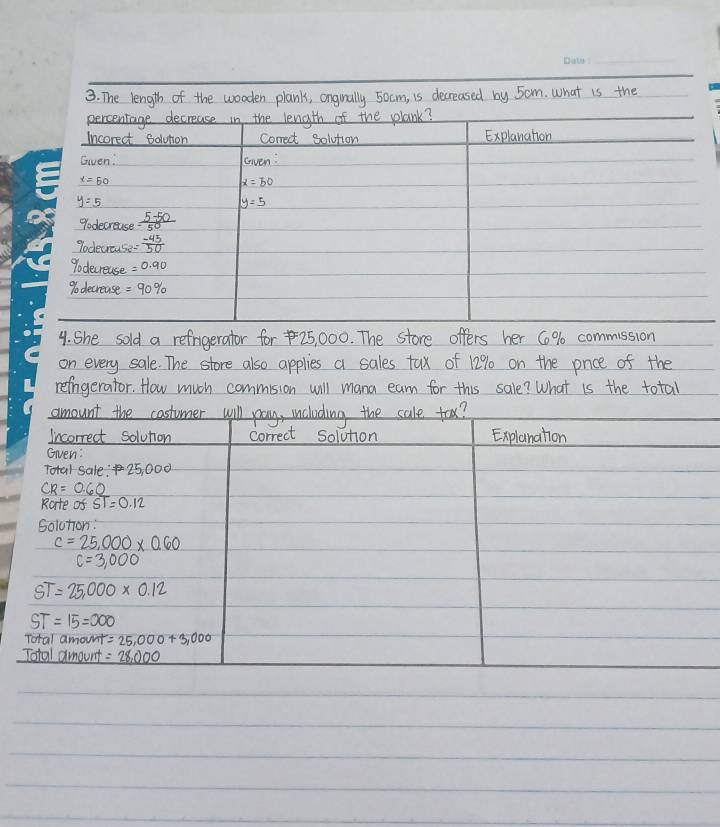 Date:
3. The length of the wooden plank, originally 50cm, is decreased by 5cm. What is the
percentage decrease in the length of the plank?
Incorect Solution Correct Solution Explanation
Given: Given:
x=50 x=50
y=5 y=5
%decrease = 5-50/50
%decrease = -45/50
%decrease = 0.90
%decrease = 90%
4. She sold a refrigerator for ₱25,000. The store offers her 6% commission
on every sale. The store also applies a sales tax of 12% on the price of the
refrigerator. How much commision will mana earn for this sale? What is the total
amount the costumer will pay, including the sale tax?
Incorrect Solution Correct Solution Explanation
Given:
Total sale: ₱25,000
CR = 0.60
Rate of ST = 0.12
Solution:
C = 25,000 x 0.60
C = 3,000
ST = 25,000 x 0.12
ST = 15=000
Total amount = 25,000 + 3,000
Total amount = 28,000